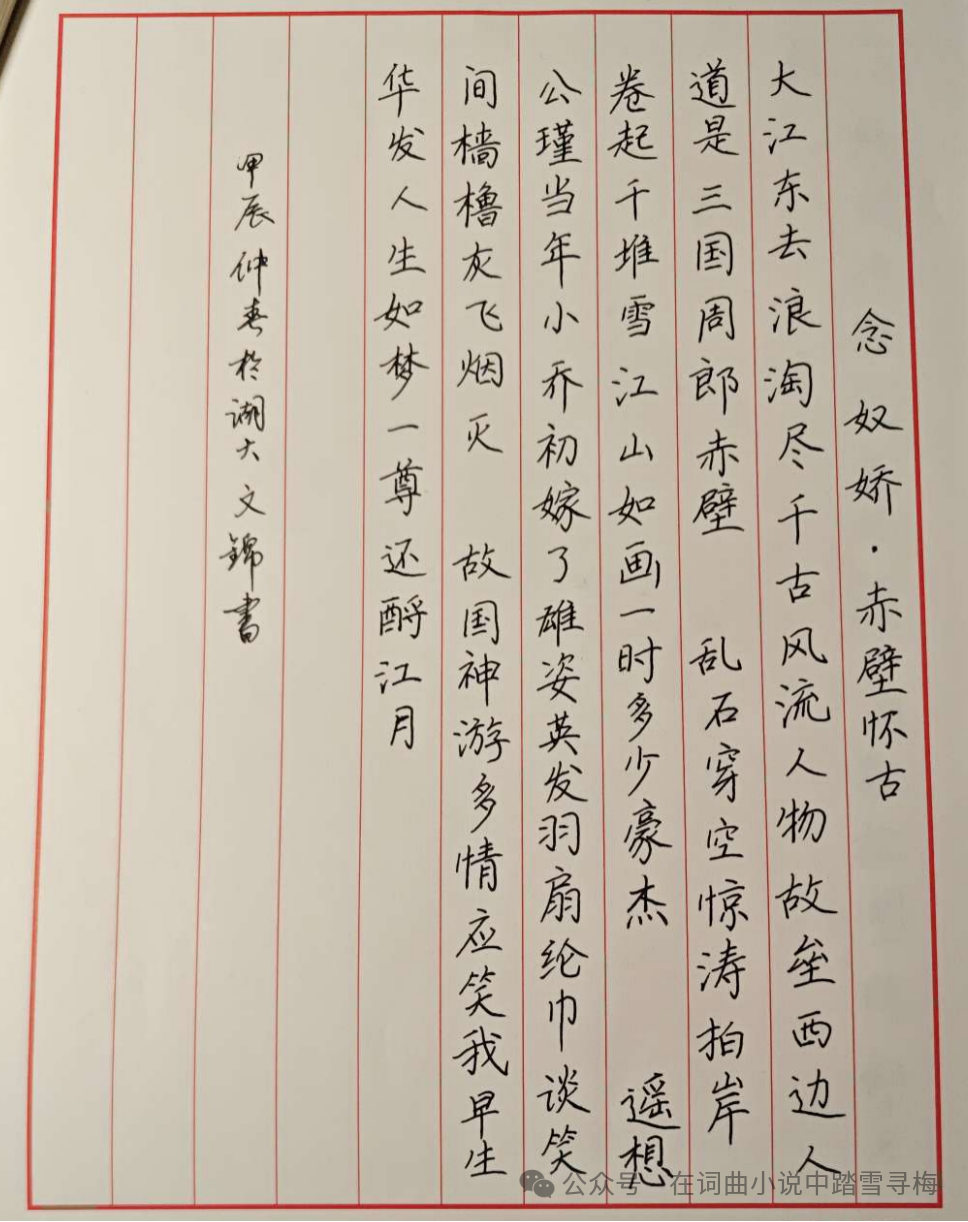 念奴娇·赤壁怀古
大江东去浪淘尽千古风流人物故垒西边人
道是三国周郎赤壁 乱石穿空惊涛拍岸
卷起千堆雪江山如画一时多少豪杰 遥想
公瑾当年小乔初嫁了雄姿英发羽扇纶巾谈笑
间樯橹灰飞烟灭 故国神游多情应笑我早生
华发人生如梦一尊还酹江月
甲辰仲春於湖大文錦書
公众号·在词曲小说中踏雪寻梅